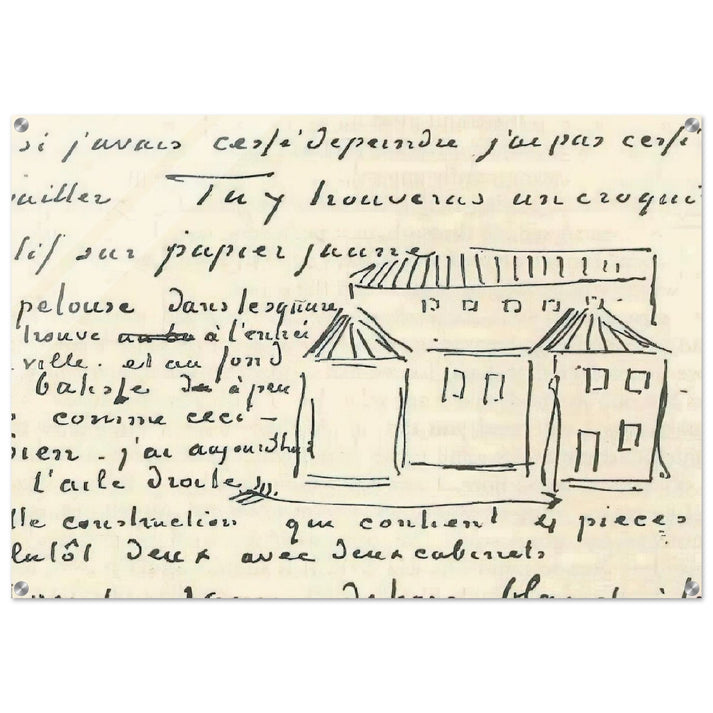 si j'avais cessé de peindre j'ai pas cessé
vailler Tu y trouveras un croqui
tif sur papier jaune
pelouse dans le square
trouve à l'entrée
ville, et au fond
batisse de à peu
comme ceci –
bien – j'ai aujourd'hui
l'aile droite
lle construction que contient 4 pieces
lutôt deux avec deux cabinets